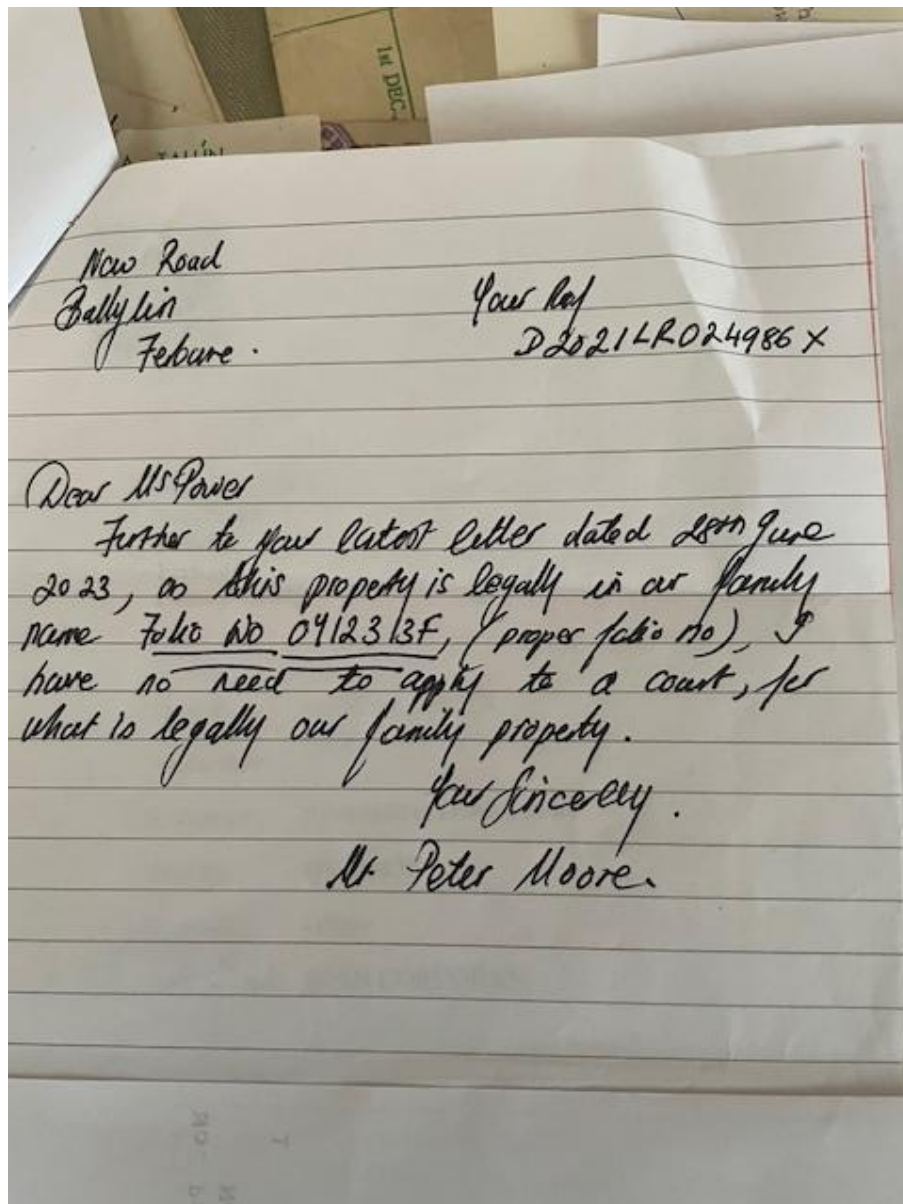 1st DEC
New Road
Ballylin
Ferbane.
Your Ref
D2021LR024986X
Dear Ms Power
Further to your latest letter dated 28th June
2023, as this property is legally in our family
name Folio No 0412313F, (proper folio no), I
have no need to apply to a court, for
what is legally our family property.
Your Sincerely.
Mr Peter Moore.